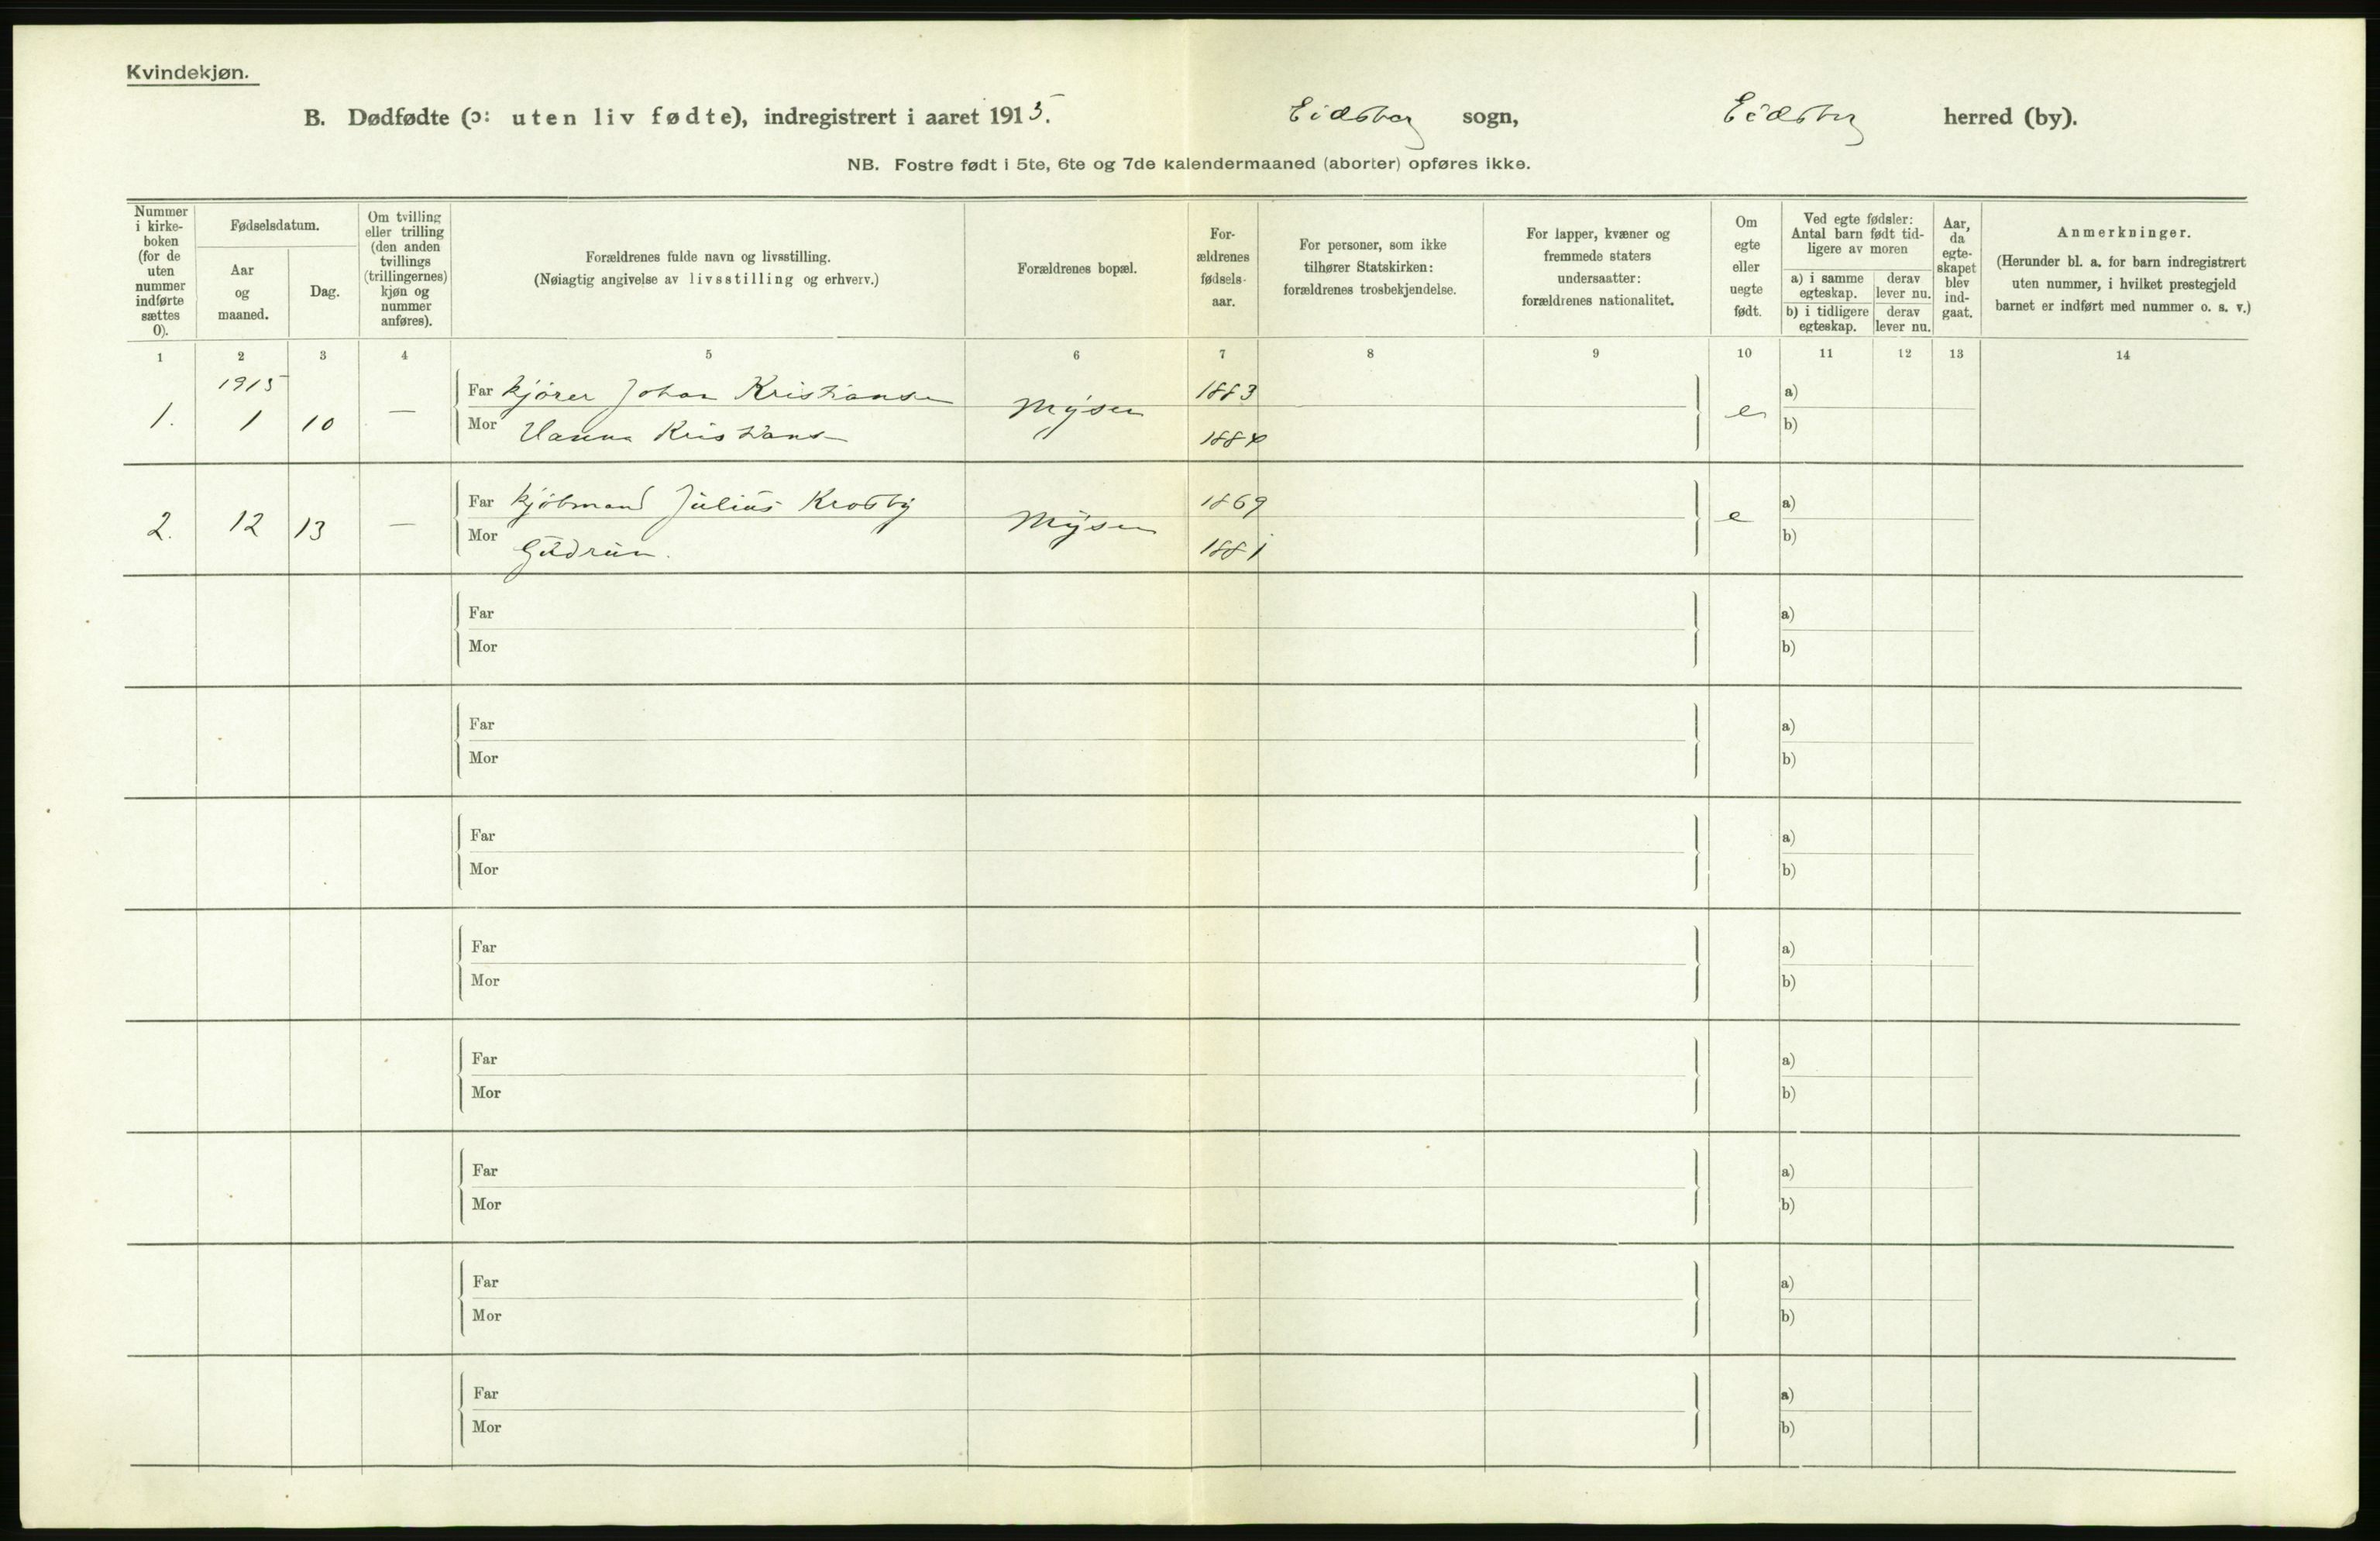 Kvindekjøn.
B. Dødfødte (ɔ: uten liv fødte), indregistrert i aaret 1915. Eidsberg sogn, Eidsberg herred (by).
NB. Fostre født i 5te, 6te og 7de kalendermaaned (aborter) opføres ikke.
Nummer i kirke-boken (for de uten nummer indførte sættes 0).
Fødselsdatum.
Aar og maaned.
Dag.
Om tvilling eller trilling (den anden tvillings (trillingernes) kjøn og nummer anføres).
Forældrenes fulde navn og livsstilling.
(Nøiagtig angivelse av livsstilling og erhverv.)
Forældrenes bopæl.
For-ældrenes fødsels-aar.
For personer, som ikke tilhører Statskirken: forældrenes trosbekjendelse.
For lapper, kvæner og fremmede staters undersaatter: forældrenes nationalitet.
Om egte eller uegte født.
Ved egte fødsler: Antal barn født tid-ligere av moren
a) i samme egteskap.
derav lever nu.
b) i tidligere egteskap.
derav lever nu.
Aar, da egte-skapet blev ind-gaat.
Anmerkninger.
(Herunder bl. a. for barn indregistrert uten nummer, i hvilket prestegjeld barnet er indført med nummer o. s. v.)
1 2 3 4 5 6 7 8 9 10 11 12 13 14
1915
1. 1 10 — Far Kjører Johan Kristiansen Mysen 1883 e a)
Mor Hanna Kristians 1884 b)
2. 12 13 — Far Kjøbmand Julius Krosby Mysen 1869 e a)
Mor Gudrun. 1881 b)
Far a)
Mor b)
Far a)
Mor b)
Far a)
Mor b)
Far a)
Mor b)
Far a)
Mor b)
Far a)
Mor b)
Far a)
Mor b)
Far a)
Mor b)